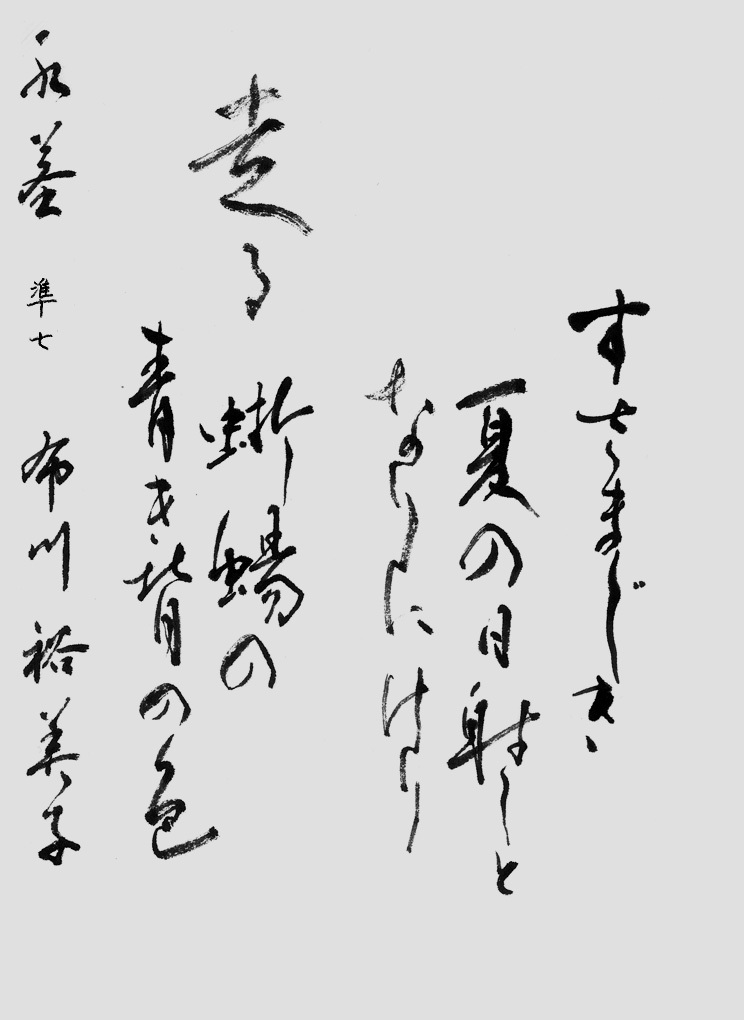 すさまじき
夏の日射しと
なりにけり
走る蜥蜴の
青き背の色
準七 布川裕美子